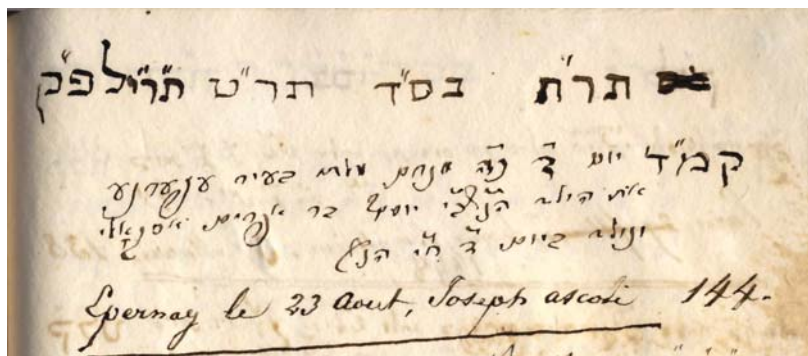 תר"ת בס"ד תר"ט תר"י לפ"ק
קמ"ד יום ד' כ"ד מנחם מלתי בעיר עפערנע
את הילד יוסף בר אפרים אסקאלי
ונולד ביום ד' ח"י הנ"ל
Epernay le 23 Aout, Joseph ascoli 144.